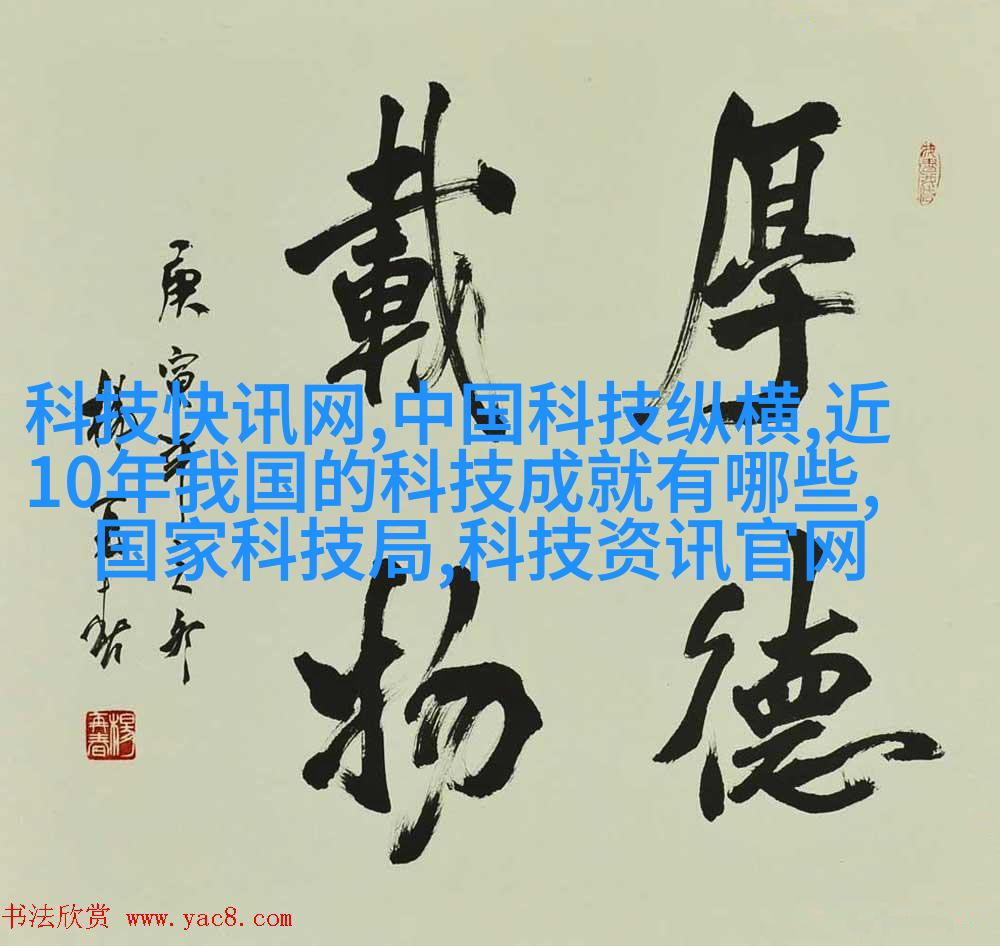 厚德
載物
庚寅
科技快讯网,中国科技纵横,近
10年我国的科技成就有哪些,
国家科技局,科技资讯官网
楊再春
书法欣赏 www.yac8.com